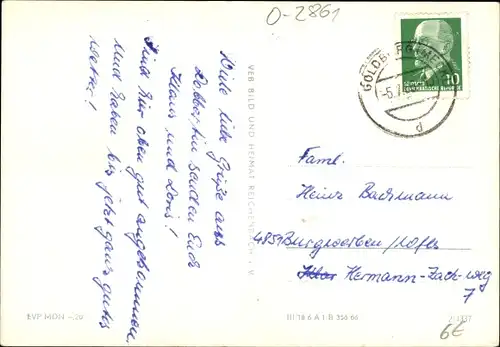 O-2861
Viele liebe Grüße aus
Dobbertin senden Euch
Klaus und Doris!
Sind hier oben gut angekommen,
und haben bis jetzt ganz gutes
Wetter!
VEB BILD UND HEIMAT REICHENBACH I. V.
GOLDBERG (MECKL)
-5.7
d
10
DEUTSCHE
DEMOKRATISCHE REPUBLIK
Faml.
Heinz Bachmann
4851 Burgwerben/
Hermann-Zack-Weg
7
EVP MDN -,20
III 18 6 A 1 B 356 66
6€